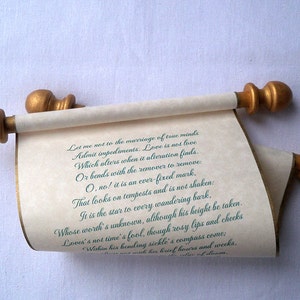 Let me not to the marriage of true minds
Admit impediments. Love is not love
Which alters when it alteration finds,
Or bends with the remover to remove:
O, no! it is an ever-fixed mark,
That looks on tempests and is not shaken;
It is the star to every wandering bark,
Whose worth's unknown, although his height be taken.
Love's not time's fool, though rosy lips and cheeks
Within his bending sickle's compass come;
with his brief hours and weeks,